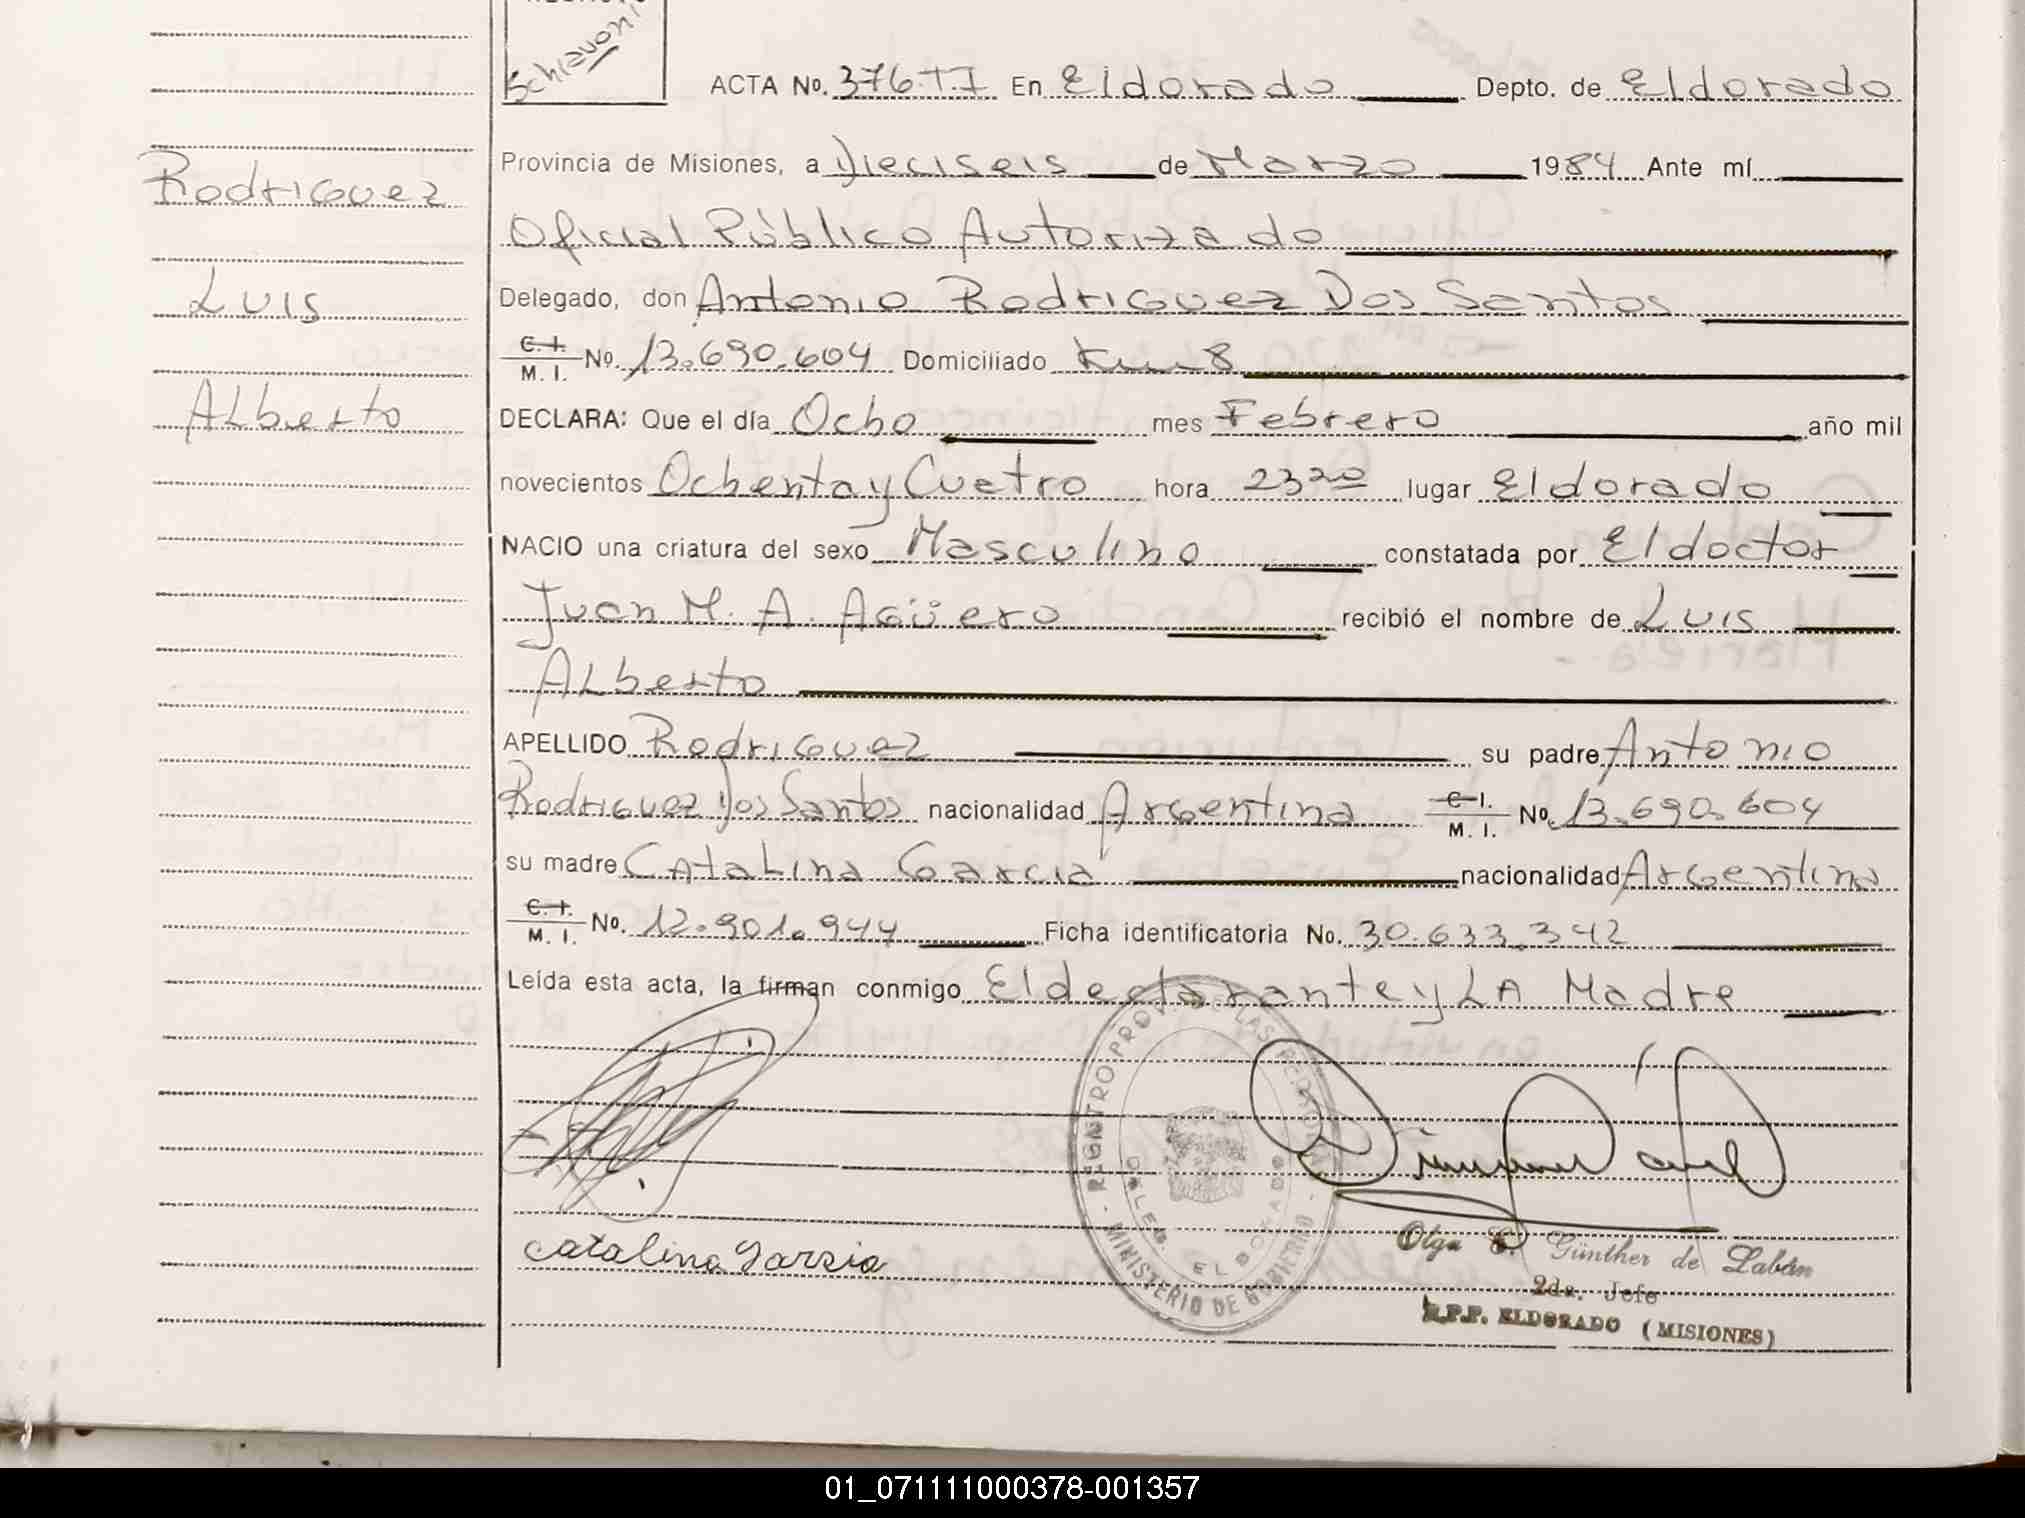 Schiavoni
ACTA No. 376.T.I En Eldorado Depto. de Eldorado
Provincia de Misiones, a Dieciseis de Marzo 1984 Ante mí
Rodriguez
Oficial Público Autorizado
Luis
Delegado, don Antonio Rodriguez Dos Santos
C. I.
M. I. No. 13.690.604 Domiciliado Km 8
Alberto
DECLARA: Que el día Ocho mes Febrero año mil
novecientos Ochenta y Cuatro hora 23 20 lugar Eldorado
NACIO una criatura del sexo Masculino constatada por El doctor
Juan M. A. Agüero recibió el nombre de Luis
Alberto
APELLIDO Rodriguez su padre Antonio
Rodriguez Dos Santos nacionalidad Argentina C. I. M. I. No. 13.690.604
su madre Catalina Garcia nacionalidad Argentina
C. I.
M. I. No. 12.901.944 Ficha identificatoria No. 30.633.342
Leída esta acta, la firman conmigo El declarante y LA Madre
REGISTRO PROV. DE LAS PERSONAS - MINISTERIO DE GOBIERNO -
ELDORADO
catalina garzia
Olga E. Günther de Labán
2da. Jefe
R.P.P. ELDORADO (MISIONES)
01_071111000378-001357